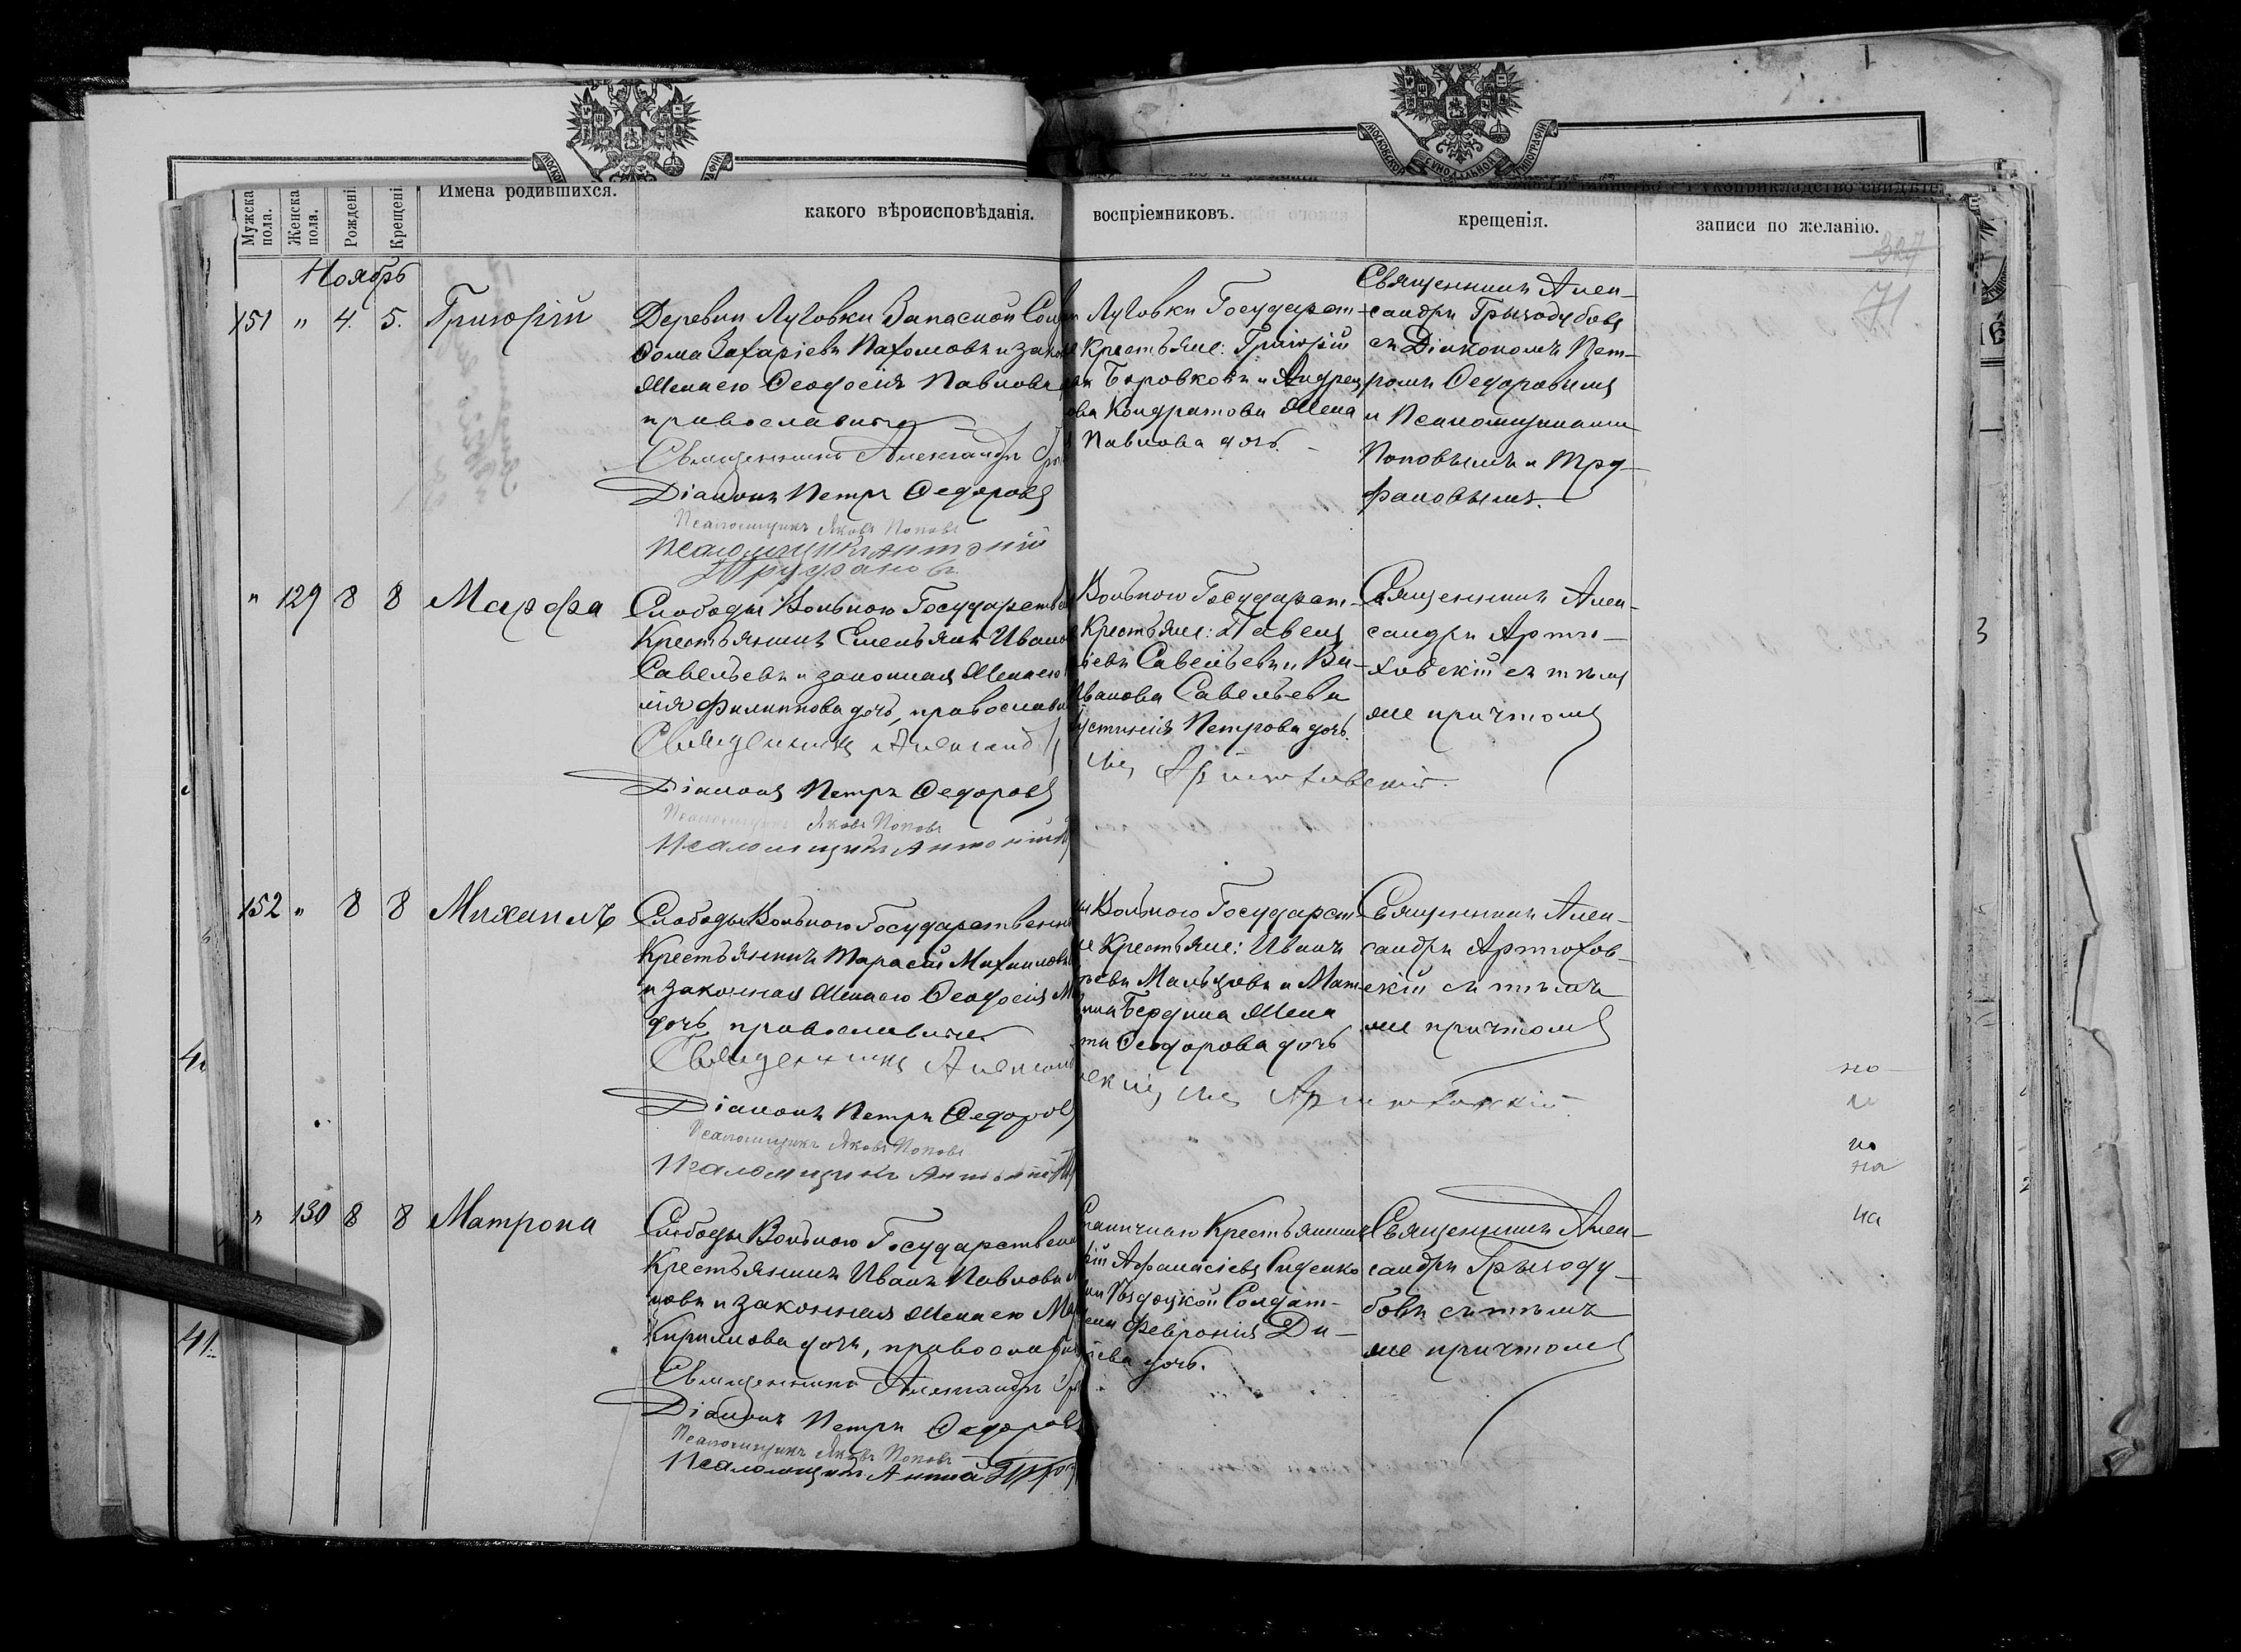 МОСКОВСКОЙ СИНОДАЛЬНОЙ ТИПОГРАФІИ
Мужска пола.
Женска пола.
Рожденi
Крещенi
Имена родившихся.
какого вѣроисповѣданія.
воспріемниковъ.
крещенія.
записи по желанію.
327
71
Ноябрь
151 " 4. 5. Григорій
Деревни Луговки Запасной
Ѳома Захаріевъ Пахомовъ и зако
жена его Ѳеодосія Павлова
православные
Священникъ Александръ
Діаконъ Петръ Ѳедоровъ
Псаломщикъ Яковъ Поповъ
Псаломщикъ Антоній
Труфановъ.
Луговки Государст-
Крестьяне: Григорій
Боровковъ и Андрея
ова Кондратова жена
Павлова дочь. -
Священникъ Алек-
сандръ Грызодубовъ
съ Діакономъ Пет-
ромъ Ѳедоровымъ
и Псаломщиками
Поповымъ и Тру-
фановымъ.
" 129 8 8 Марфа
Слободы Вольного Государстве
Крестьянинъ Емельянъ Ивано
Савельевъ и законная жена его
нія Филиппова дочь, православ
Священникъ Александ
Діаконъ Петръ Ѳедоровъ
Псаломщикъ Яковъ Поповъ
Псаломщикъ Антоній
Вольного Государст-
Крестьяне: Павелъ
іевъ Савельевъ и Ва-
Иванова Савельева
устинія Петрова дочь.
Артюховскій.
Священникъ Алек-
сандръ Артю-
ховскій съ тѣмъ
же причтомъ
152 " 8 8 Михаилъ
Слободы Вольного Государственны
Крестьянинъ Тарасій Михаиловъ
и законная жена его Ѳеодосія М
дочь, православные
Священникъ Алексан
Діаконъ Петръ Ѳедоровъ
Псаломщикъ Яковъ Поповъ
Псаломщикъ Антоній
Вольного Государст-
е Крестьяне: Иванъ
ьевъ Мальцовъ и Мат-
Бердина жена
та Ѳеодорова дочь
Артюховскій.
Священникъ Алек-
сандръ Артюхов-
скій съ тѣмъ
же причтомъ
но
и
но
на
на
" 130 8 8 Матрона
Слободы Вольного Государствен
Крестьянинъ Иванъ Павловъ
новъ и законная жена его Ма
Кириллова дочь, православн
Священникъ Александръ
Діаконъ Петръ Ѳедоровъ
Псаломщикъ Яковъ Поповъ
Псаломщикъ
Станичного Крестьянинъ
ій Афанасіевъ Руденко
Солдат-
Февронія Ди-
іева дочь.
Священникъ Алек-
сандръ Грызоду-
бовъ съ тѣмъ
же причтомъ
41.
3